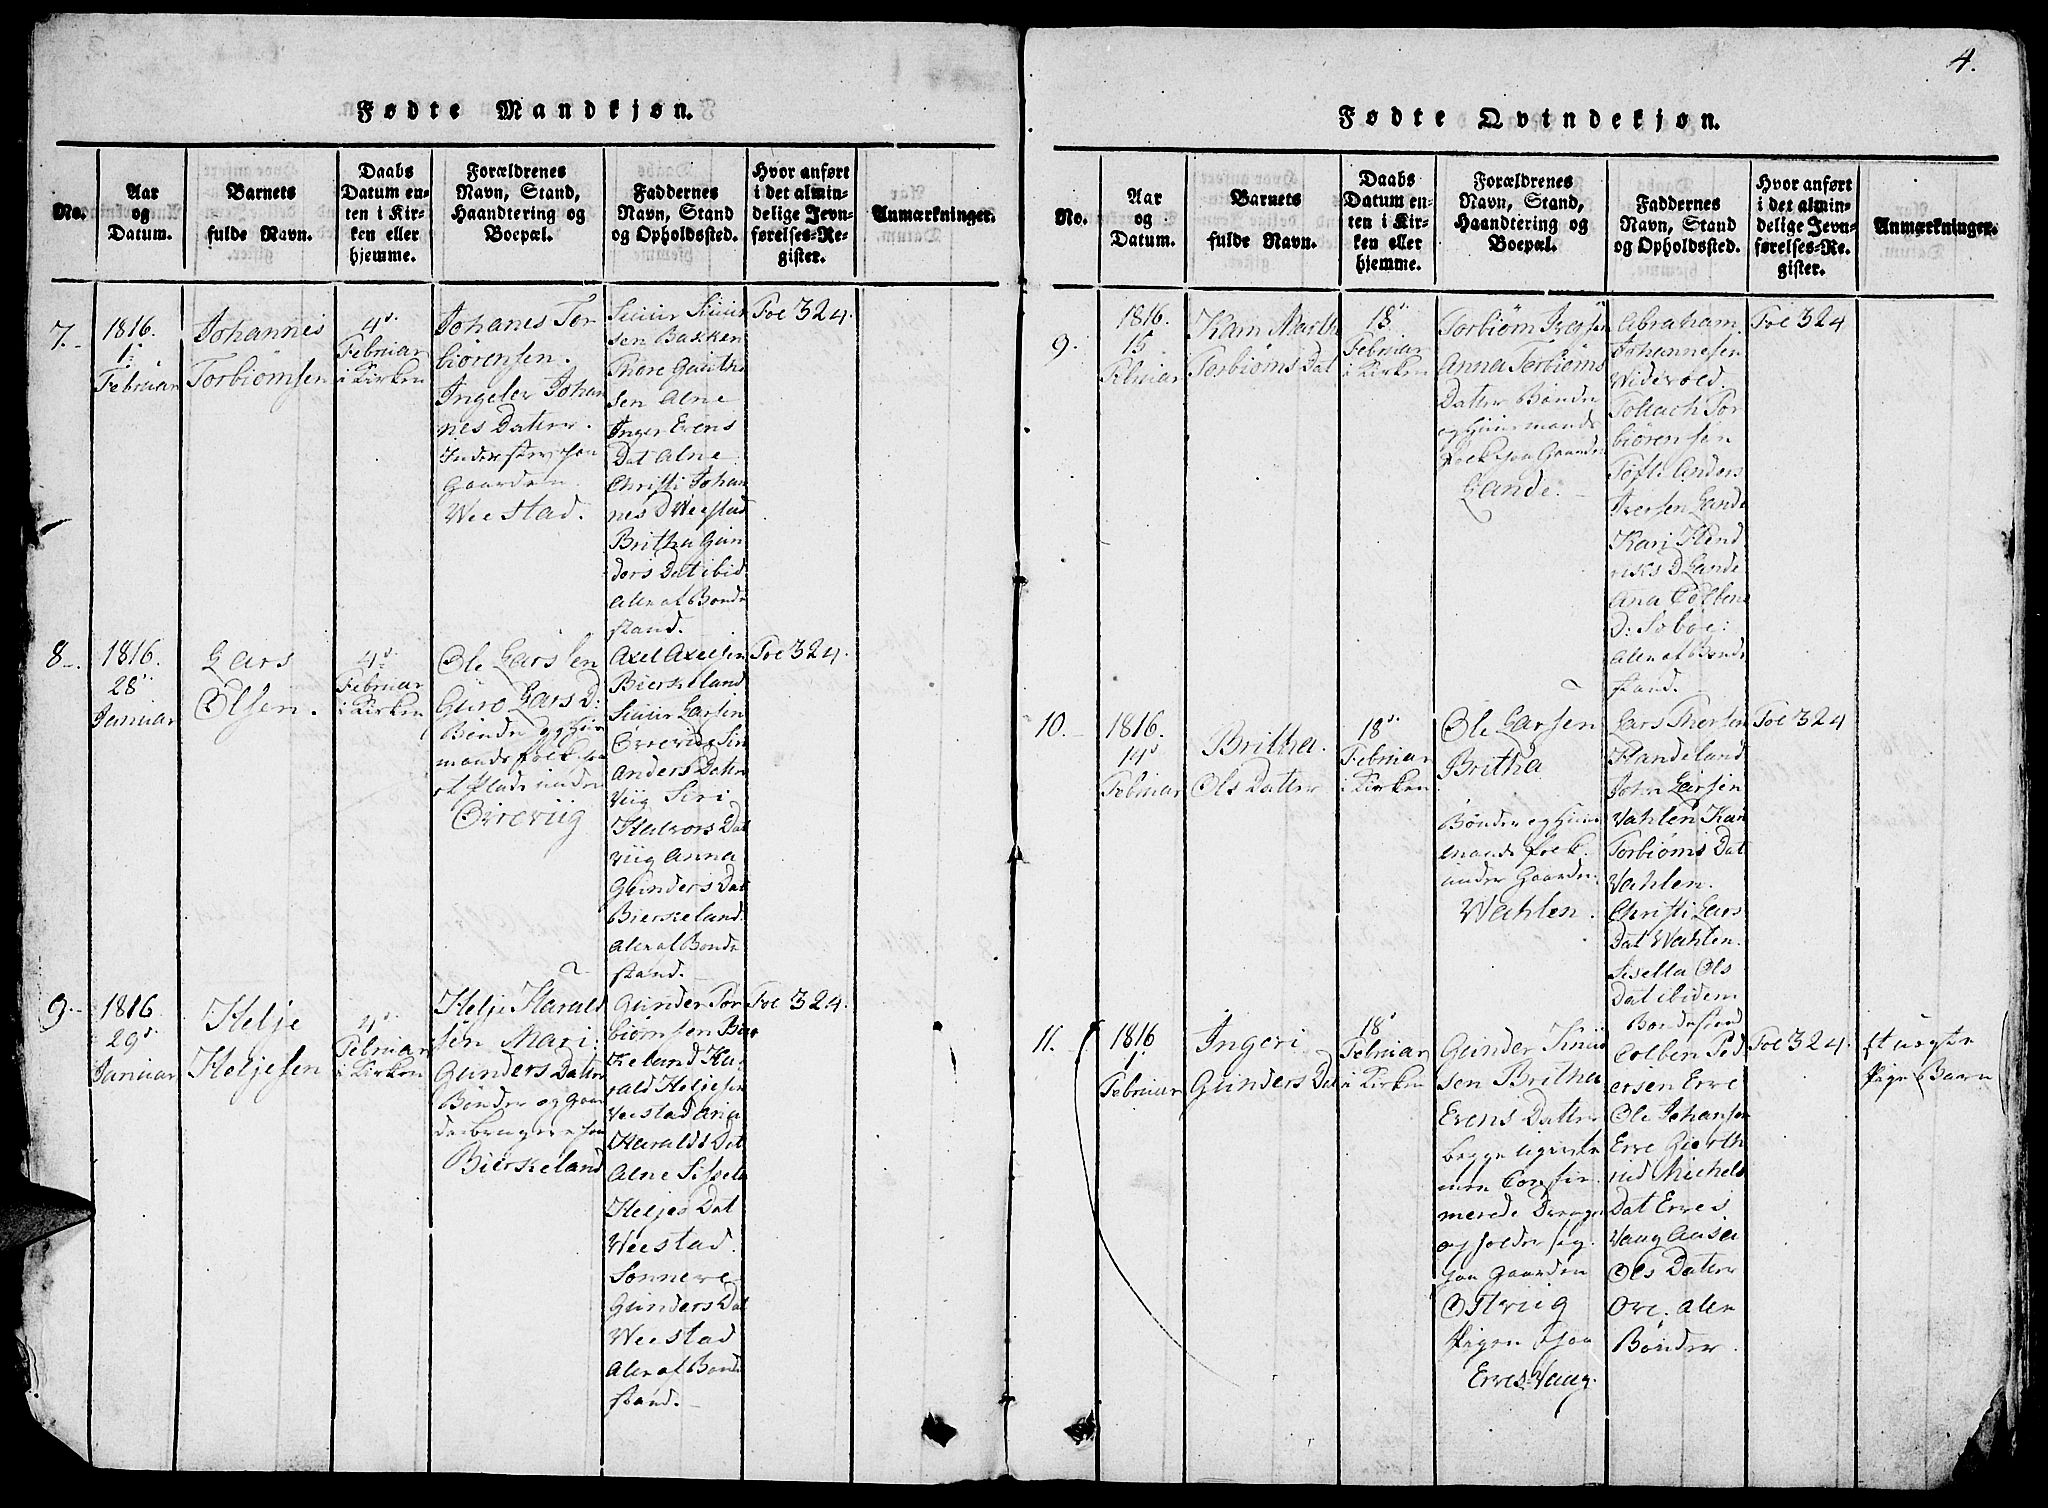 4.
Fødte Mandkjøn.
No.
Aar
og
Datum.
Barnets
fulde Navn.
Daabs
Datum en-
ten i Kir-
ken eller
hjemme.
Forældrenes
Navn, Stand,
Haandtering og
Boepæl.
Faddernes
Navn, Stand
og Opholdssted.
Hvor anført
i det almin-
delige Jevn-
førelses-Re-
gister.
Anmærkninger.
7.
1816.
1
Februar
Johannes
Torbiørnsen
4
Februar
i Kirken
Johanes Tor
biörensen.
Ingeler Johan
nes Datter.
Gaarden
Weestad.
Siuur Siuur
sen Bakken
Thore Gunth
sen Alne
Inger Evens
Dat Alne
Christi Johan
nes D Weestad
Britha Gun
ders Dat ibid
Aller af Bonde
stand.
Foe 324.
8.
1816.
28
Januar
Lars
Olsen.
4
Februar
i Kirken
Ole Larssen
Guro Lars D:
Bønder og Huus
mands folk paa
et Plads under
Orreviig
Axel Axelsen
Bierkeland
Siuur Larsen
Orreviig Siri
Anders Datter
Viig Siri
Halvors Dat
Viig Anna
Gunders Dat
Bierkeland.
Aller af Bonde
stand.
Foe 324.
9.
1816
29
Januar
Helje
Heljesen
4
Februar
i Kirken
Helje Harald
sen Mari
Gunders Datter
Bønder og Gaar
debrugere paa
Bierkeland
Gunder Tor
biørnsen Bier
keland Ha
rald Heljesen
Veestad Ana
Haralds Dat
Alne Sissela
Heljes Dat
Weestad.
Sonneve
Gunders Dat
Weestad
Aller af Bonde
stand.
Foe 324.
Fødte Qvindekjøn.
No.
Aar
og
Datum.
Barnets
fulde Navn.
Daabs
Datum en-
ten i Kir-
ken eller
hjemme.
Forældrenes
Navn, Stand,
Haandtering og
Boepæl.
Faddernes
Navn, Stand
og Opholdssted.
Hvor anført
i det almin-
delige Jevn-
førelses-Re-
gister.
Anmærkninger.
9.
1816.
15
Februar
Karn Marth
Torbiørns Dat
18
Februar
i Kirken
Torbiørn
Anna Torbiørns
Datter Bønder
og Huusmands
folk paa Gaarden
Lande.
Abraham
Johannesen
Widevold.
Tollach Tor
biørensen
Tofti Anders
Iversen Lande
Kari Hend
riks D Lande
Ana Colbens
D: Soboe:
Aller af Bonde
stand.
Foe 324
10.
1816.
14
Februar
Britha
Ols Datter
18
Februar
i Kirken
Ole Larsen
Britha
Bønder og Huus
mands folk
under Gaarden
Wahlen.
Lars Thorsen
Handeland
John Larsen
Vahlen Kari
Torbiørns Dat
Vahlen.
Christi Lars
Dat Wahlen.
Sisella Ols
Dat ibidem
Bondestand
Foe 324
11.
1816
1
Februar
Ingeri
Gunders Dat
18
Februar
i Kirken
Gunder Knud
sen Britha
Evens Datter
begge ugivte
men Confir
merede Drengen
opholder sig
paa Gaarden
Ostviig
Pigen paa
Erres-Vaag.
Colben Ped
ersen Erre
Ole Johansen
Erre Gierth
rud Michels
Dat Erres
Vaag Aasa
Ols Datter
Ore. aller
Bønder.
Foe 324.
et uægte
Pige Barn